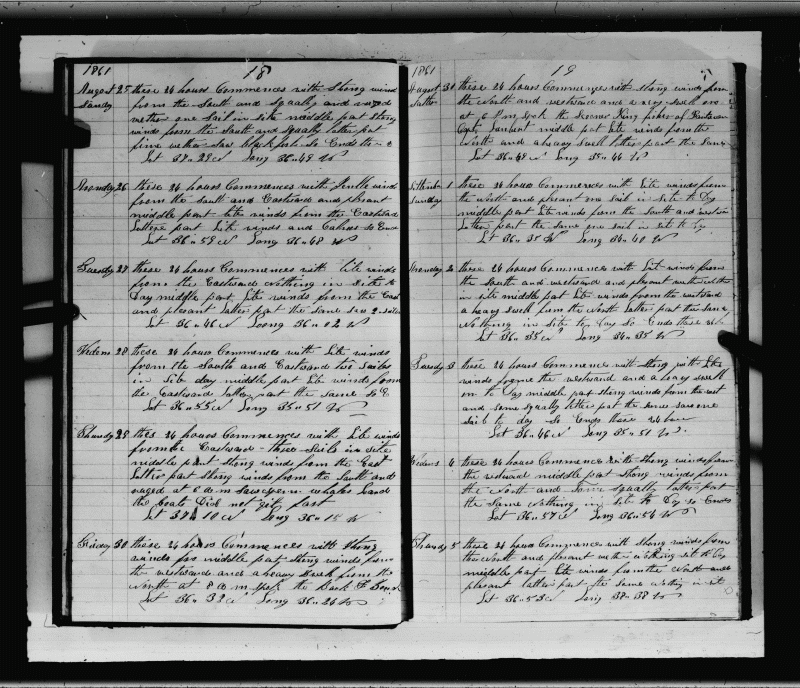 1861 18
August 25 these 24 hours Commences with Strong wind
Sundy from the South and Squally and
wether one Sail in site middle part Strong
winds from the South and Squally latter part
fine wether Saw black fish So Ends the
Lat 37 29 N Long 36 49 W
Monday 26 these 24 hours Commences with Gentle wind
from the South and Eastward and plesant
middle part lite winds from the Eastward
Latter part Lite winds and Calms So Ends
Lat 36 59 N Long 36 48 W
Tuesdy 27 these 24 hours Commences with lite winds
from the Eastward Nothing in Site to
Day middle part Lite winds from the East
and plesant latter part the Same Saw 2 Sails
Lat 36 46 N Loong 36 02 W
Wedens 28 these 24 hours Commences with Lite winds
from the South and Eastward two Sailes
in Site day middle part Lite winds from
the Eastward latter part the Same So E
Lat 36 55 N Long 35 51 W
Thursdy 29 thes 24 hours Commences with Lite winds
from the Eastward three Sails in Site
middle part Strong winds from the East
Latter part Strong winds from the South and
ruged at 6 a m Saw Sperm whales Lowerd
the boats Did not git fast
Lat 37 10 N Long 36 15 W
Friday 30 these 24 hours Commences with Strong
winds middle part Strong winds from
the westward and a heavy from the
North at 8 a m Spok the Bark
Lat 36 32 N Long 36 26 W
1861 19
August 31 these 24 hours Commences with Strong winds from
Satter the North and westward and a heavy Swell on
at 6 P m Spok the Scooner King fisher of
Capt middle part Lite winds from the
North and a heavy Swell latter part the Same
Lat 36 48 N Long 35 44 W
1 these 24 hours Commences with Lite winds from
Sunday the North and plesant one Sail in Site to Day
middle part Lite winds from the South and westw
Latter part the Same one Sail in Sit to dy
Lat 36 35 N Long 36 40 W
Monday 2 these 24 hours Commences with Lite winds from
the South and westward and plesant nothing
in Site middle part Lite winds from the westward
a heavy Swell from the North latter part the Same
Nothing in Site to Day So Ends these 24 h
Lat 36 33 N Long 36 35 W
Tuesdy 3 these 24 hours Commence with Strong with Lite
winds frome the westward and a heavy Swell
on to Day middle part Strong winds from the west
and Some Squally latter part the Same Saw one
Sail to day So Ends these 24 hours
Lat 36 46 N Long 35 51 W
Wedens 4 these 24 hours Commences with Strong winds from
the westward middle part Strong winds from
the North and Some Squally latter part
the Same Nothing in Sit to Day So Ends
Lat 36 57 N Long 36 54 W
Thursdy 5 these 24 hours Commences with Strong winds from
the North and plesant nothing Sit to Day
middle part Lite winds from the North and
plesant latter part the Same nothing in Sit
Lat 36 53 N Long 38 38 W